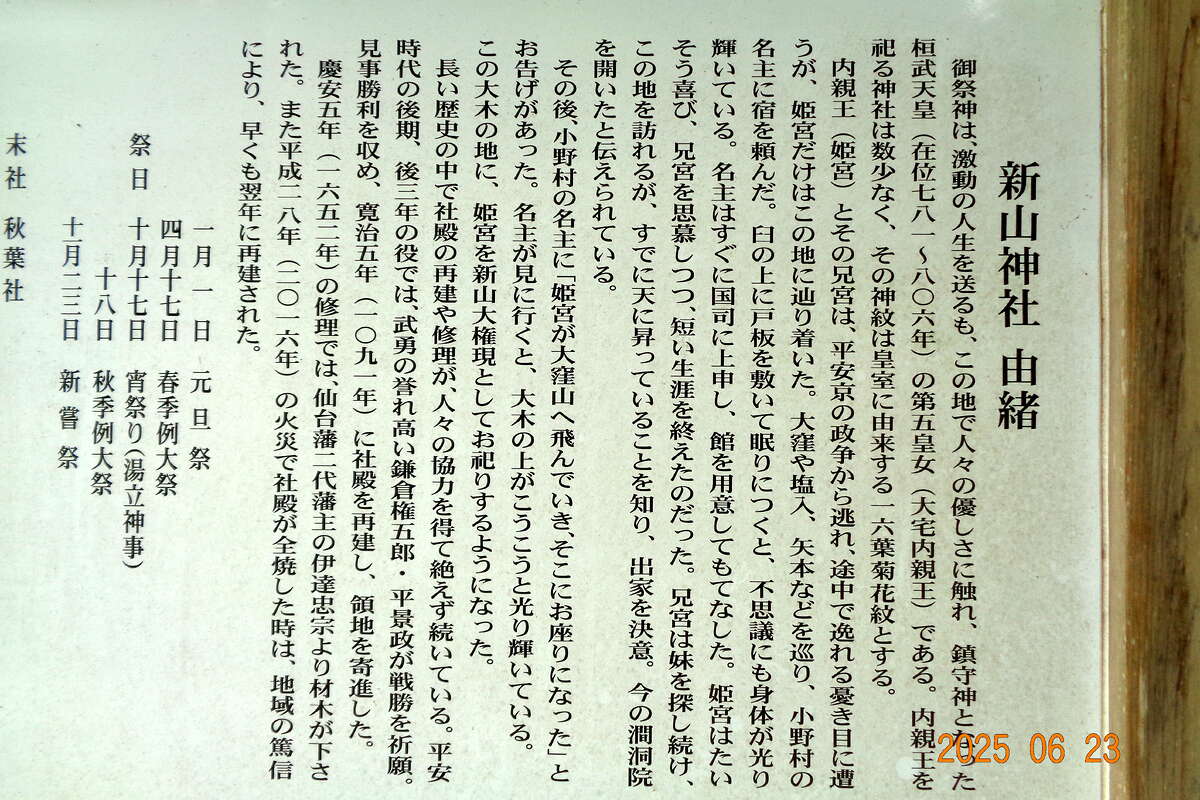 新山神社 由緒
御祭神は、激動の人生を送るも、この地で人々の優しさに触れ、鎮守神となった
桓武天皇（在位七八一～八〇六年）の第五皇女（大宅内親王）である。内親王を
祀る神社は数少なく、その神紋は皇室に由来する一六葉菊花紋とする。
内親王（姫宮）とその兄宮は、平安京の政争から逃れ、途中で逸れる憂き目に遭
うが、姫宮だけはこの地に辿り着いた。大窪や塩入、矢本などを巡り、小野村の
名主に宿を頼んだ。臼の上に戸板を敷いて眠りにつくと、不思議にも身体が光り
輝いている。名主はすぐに国司に上申し、館を用意してもてなした。姫宮はたい
そう喜び、兄宮を思慕しつつ、短い生涯を終えたのだった。兄宮は妹を探し続け、
この地を訪れるが、すでに天に昇っていることを知り、出家を決意。今の澗洞院
を開いたと伝えられている。
その後、小野村の名主に「姫宮が大窪山へ飛んでいき、そこにお座りになった」と
お告げがあった。名主が見に行くと、大木の上がこうこうと光り輝いている。
この大木の地に、姫宮を新山大権現としてお祀りするようになった。
長い歴史の中で社殿の再建や修理が、人々の協力を得て絶えず続いている。平安
時代の後期、後三年の役では、武勇の誉れ高い鎌倉権五郎・平景政が戦勝を祈願。
見事勝利を収め、寛治五年（一〇九一年）に社殿を再建し、領地を寄進した。
慶安五年（一六五二年）の修理では、仙台藩二代藩主の伊達忠宗より材木が下さ
れた。また平成二八年（二〇一六年）の火災で社殿が全焼した時は、地域の篤信
により、早くも翌年に再建された。
一月一日 元旦祭
四月十七日 春季例大祭
祭日 十月十七日 宵祭り（湯立神事）
十八日 秋季例大祭
十一月二三日 新嘗祭
末社 秋葉社
2025 06 23